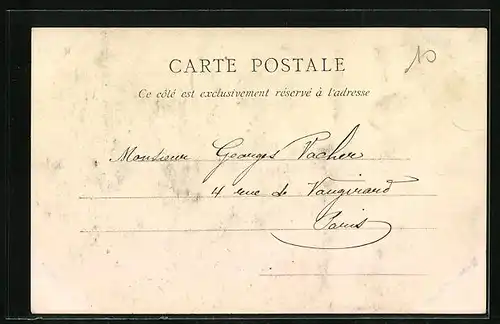 10
CARTE POSTALE
Ce côté est exclusivement réservé à l'adresse
Monsieur Georges Vacher
4 rue de Vaugirard
Paris